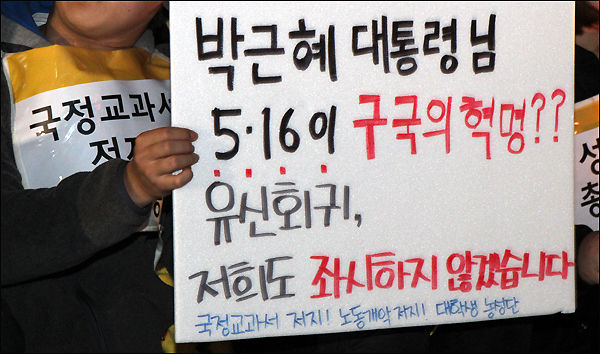 박근혜 대통령님
5·16이 구국의 혁명??
유신회귀,
저희도 좌시하지 않겠습니다
국정교과서 저지! 노동개악 저지! 대학생 농성단
국정교과서